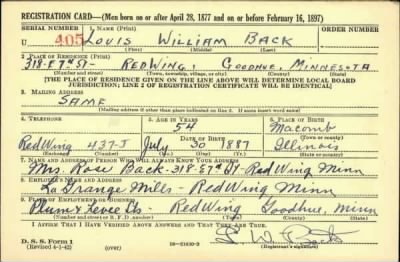 REGISTRATION CARD—(Men born on or after April 28, 1877 and on or before February 16, 1897)
SERIAL NUMBER 1. NAME (Print) ORDER NUMBER
U 405 LOUIS WILLIAM BACK
(First) (Middle) (Last)
2. PLACE OF RESIDENCE (Print)
318-E 7th St- RED WING, GOODHUE, MINNESOTA
(Number and street) (Town, township, village, or city) (County) (State)
[THE PLACE OF RESIDENCE GIVEN ON THE LINE ABOVE WILL DETERMINE LOCAL BOARD
JURISDICTION; LINE 2 OF REGISTRATION CERTIFICATE WILL BE IDENTICAL]
3. MAILING ADDRESS
SAME
(Mailing address if other than place indicated on line 2. If same insert word same)
4. TELEPHONE 5. AGE IN YEARS 6. PLACE OF BIRTH
54 Macomb
DATE OF BIRTH (Town or county)
Red Wing 437-J July 30 1887 Illinois
(Exchange) (Number) (Mo.) (Day) (Yr.) (State or country)
7. NAME AND ADDRESS OF PERSON WHO WILL ALWAYS KNOW YOUR ADDRESS
Mrs. Rose Back-318-E 7th St-Red Wing Minn
8. EMPLOYER'S NAME AND ADDRESS
La Grange Mills-Red Wing Minn
9. PLACE OF EMPLOYMENT OR BUSINESS
Plum & Levee Sts- Red Wing Goodhue, Minn
(Number and street or R. F. D. number) (Town) (County) (State)
I AFFIRM THAT I HAVE VERIFIED ABOVE ANSWERS AND THAT THEY ARE TRUE.
L. W. Back
D. S. S. Form 1
(Revised 4-1-42) (over) 16-21630-2 (Registrant's signature)